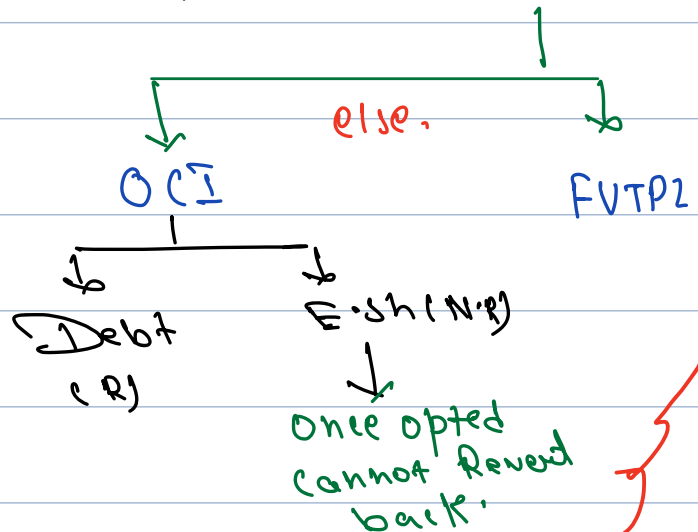 else.
OCI
FVTPL
Debt
(R)
E.sh (N.R)
Once opted
cannot Revert
back.